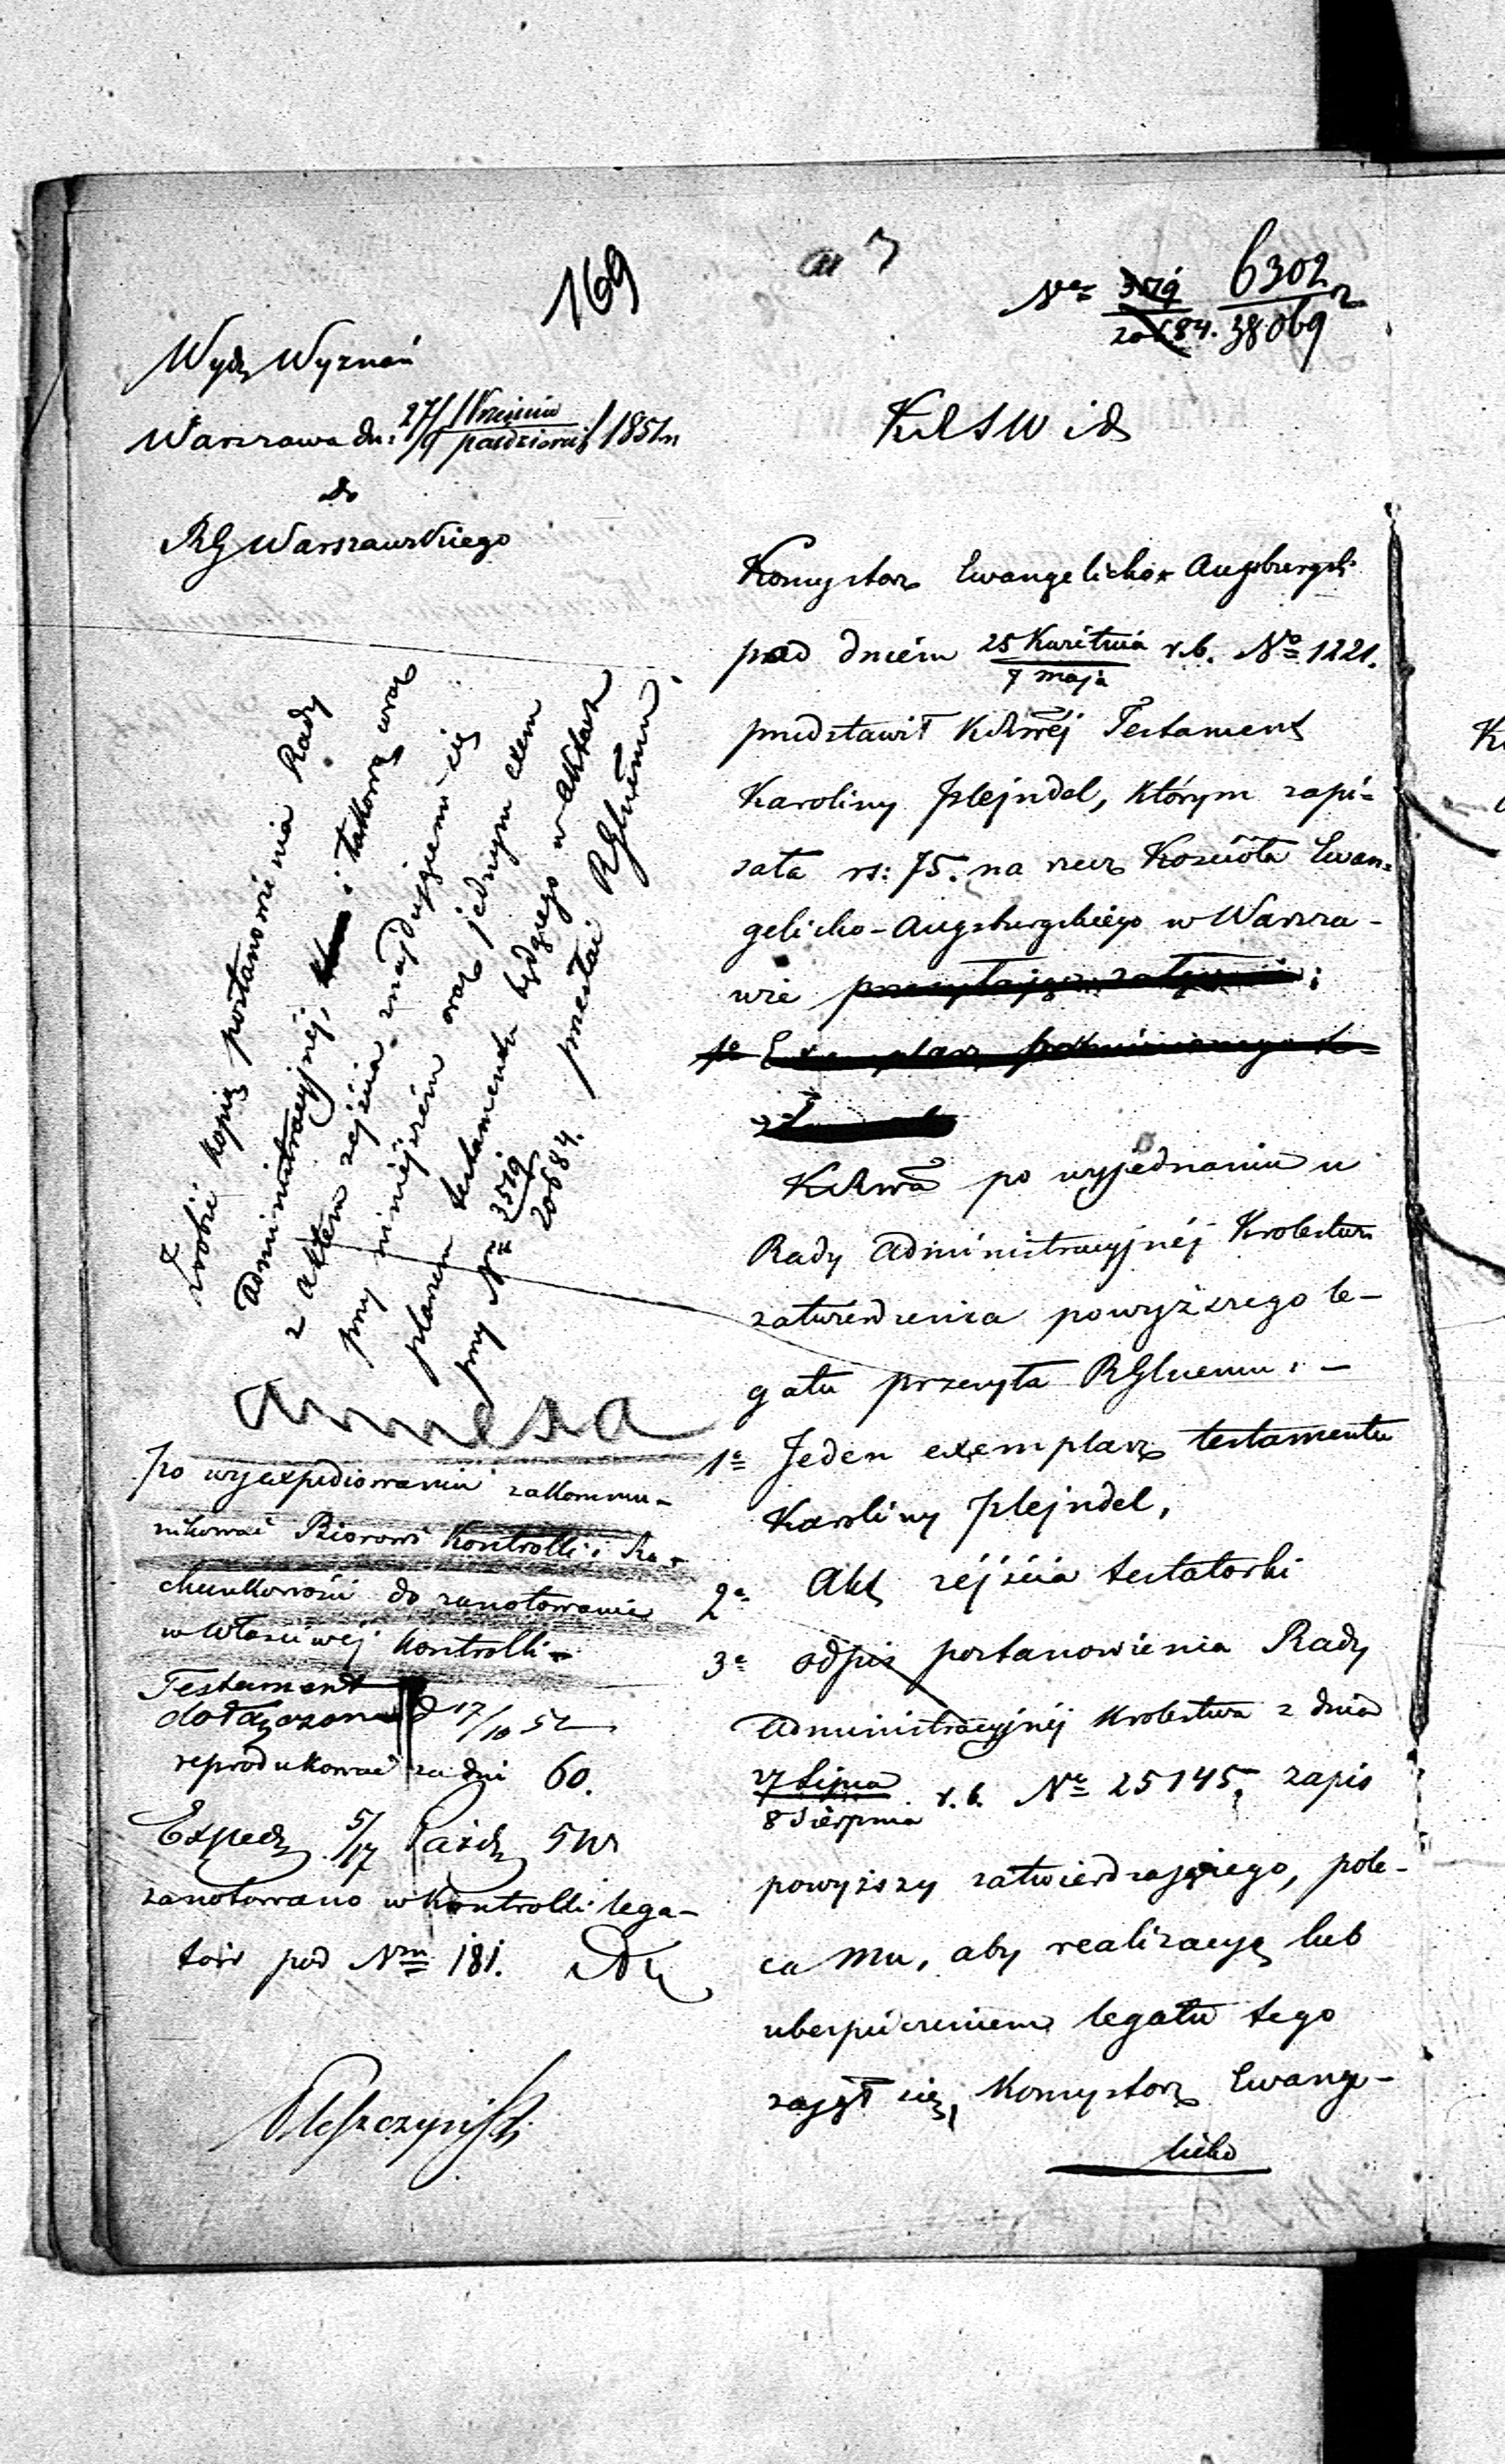 169
Nro 3519/20684. 6302/38069
Wydz Wyznań
Warszawa dn: 27 Września/9 października 1851 r
do
RG Warszawskiego
KRSW i D
Konsystorz Ewangelicko Augsburgski
pod dniem 25 Kwietnia/7 maja r.b. No 1221.
przedstawił KRwéj Testament
Karoliny Plejndel, którym zapi=
sała rs: 75. na rzecz Kościoła Ewan=
gelicko-Augsburgskiego w Warsza-
wie
KRwa po wyjednaniu u
Rady Administracyjnéj Królestwa
zatwierdzenia powyższego le-
gatu przesyła RGlnemu: -
1e Jeden exemplarz testamentu
Karoliny Plejndel,
2e Akt zejścia testatorki
3e odpis postanowienia Rady
Administracyjnéj Królestwa z dnia
27 Lipca/8 Sierpnia r.b. No 25145. zapis
powyższy zatwierdzającego, pole-
ca mu, aby realizacyą lub
ubezpieczeniem legatu tego
zajął się, Konsystorz Ewange-
licko
Zrobić kopią postanowienia Rady
Administracyjnéj, i takową wraz
z aktem zejścia znajdującem się
przy niniejszém oraz jednym exem
plarzem testamentu będącego w aktach
przy Nrze 3519/20684. przesłać RGlnemu.
annexa
Po wyexpediowaniu zakommu-
nikować Biorowi Kontrolli i Ra-
chunkowości do zanotowania
w właściwéj kontrolli
Testament
dołączono d 17/10 51
reprodukować za dni 60.
Exped 5/17 Paźdz 51 r
zanotowano w kontrolli lega-
tów pod Nrm 181.